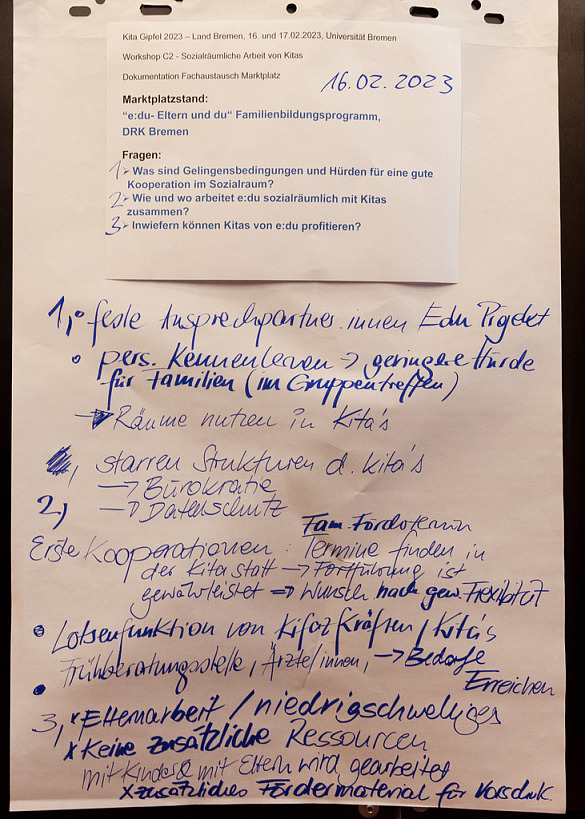 Kita Gipfel 2023 – Land Bremen, 16. und 17.02.2023, Universität Bremen
Workshop C2 - Sozialräumliche Arbeit von Kitas
Dokumentation Fachaustausch Marktplatz
16.02.2023
Marktplatzstand:
"e:du- Eltern und du" Familienbildungsprogramm,
DRK Bremen
Fragen:
1 ➢ Was sind Gelingensbedingungen und Hürden für eine gute
Kooperation im Sozialraum?
2 ➢ Wie und wo arbeitet e:du sozialräumlich mit Kitas
zusammen?
3 ➢ Inwiefern können Kitas von e:du profitieren?
1, • feste Ansprechpartner.innen Edu Projekt
• pers. Kennenlernen → geringere Hürde
für Familien (im Gruppentreffen)
→ Räume nutzen in Kita's
starren Strukturen d. Kita's
→ Bürokratie
2, → Datenschutz
Erste Kooperationen : Termine finden in
der Kita statt → Fortführung ist
gewährleistet → Wunsch nach gew. Flexibilität
• Lotsenfunktion von Kräften / Kita's
Frühberatungsstelle, Ärzte/innen, → Bedarfe
• Erreichen
3, x Elternarbeit / niedrigschwelliges
x Keine zusätzliche Ressourcen
mit Kinder & mit Eltern wird gearbeitet
x zusätzliches Fördermaterial für Vorschuk.